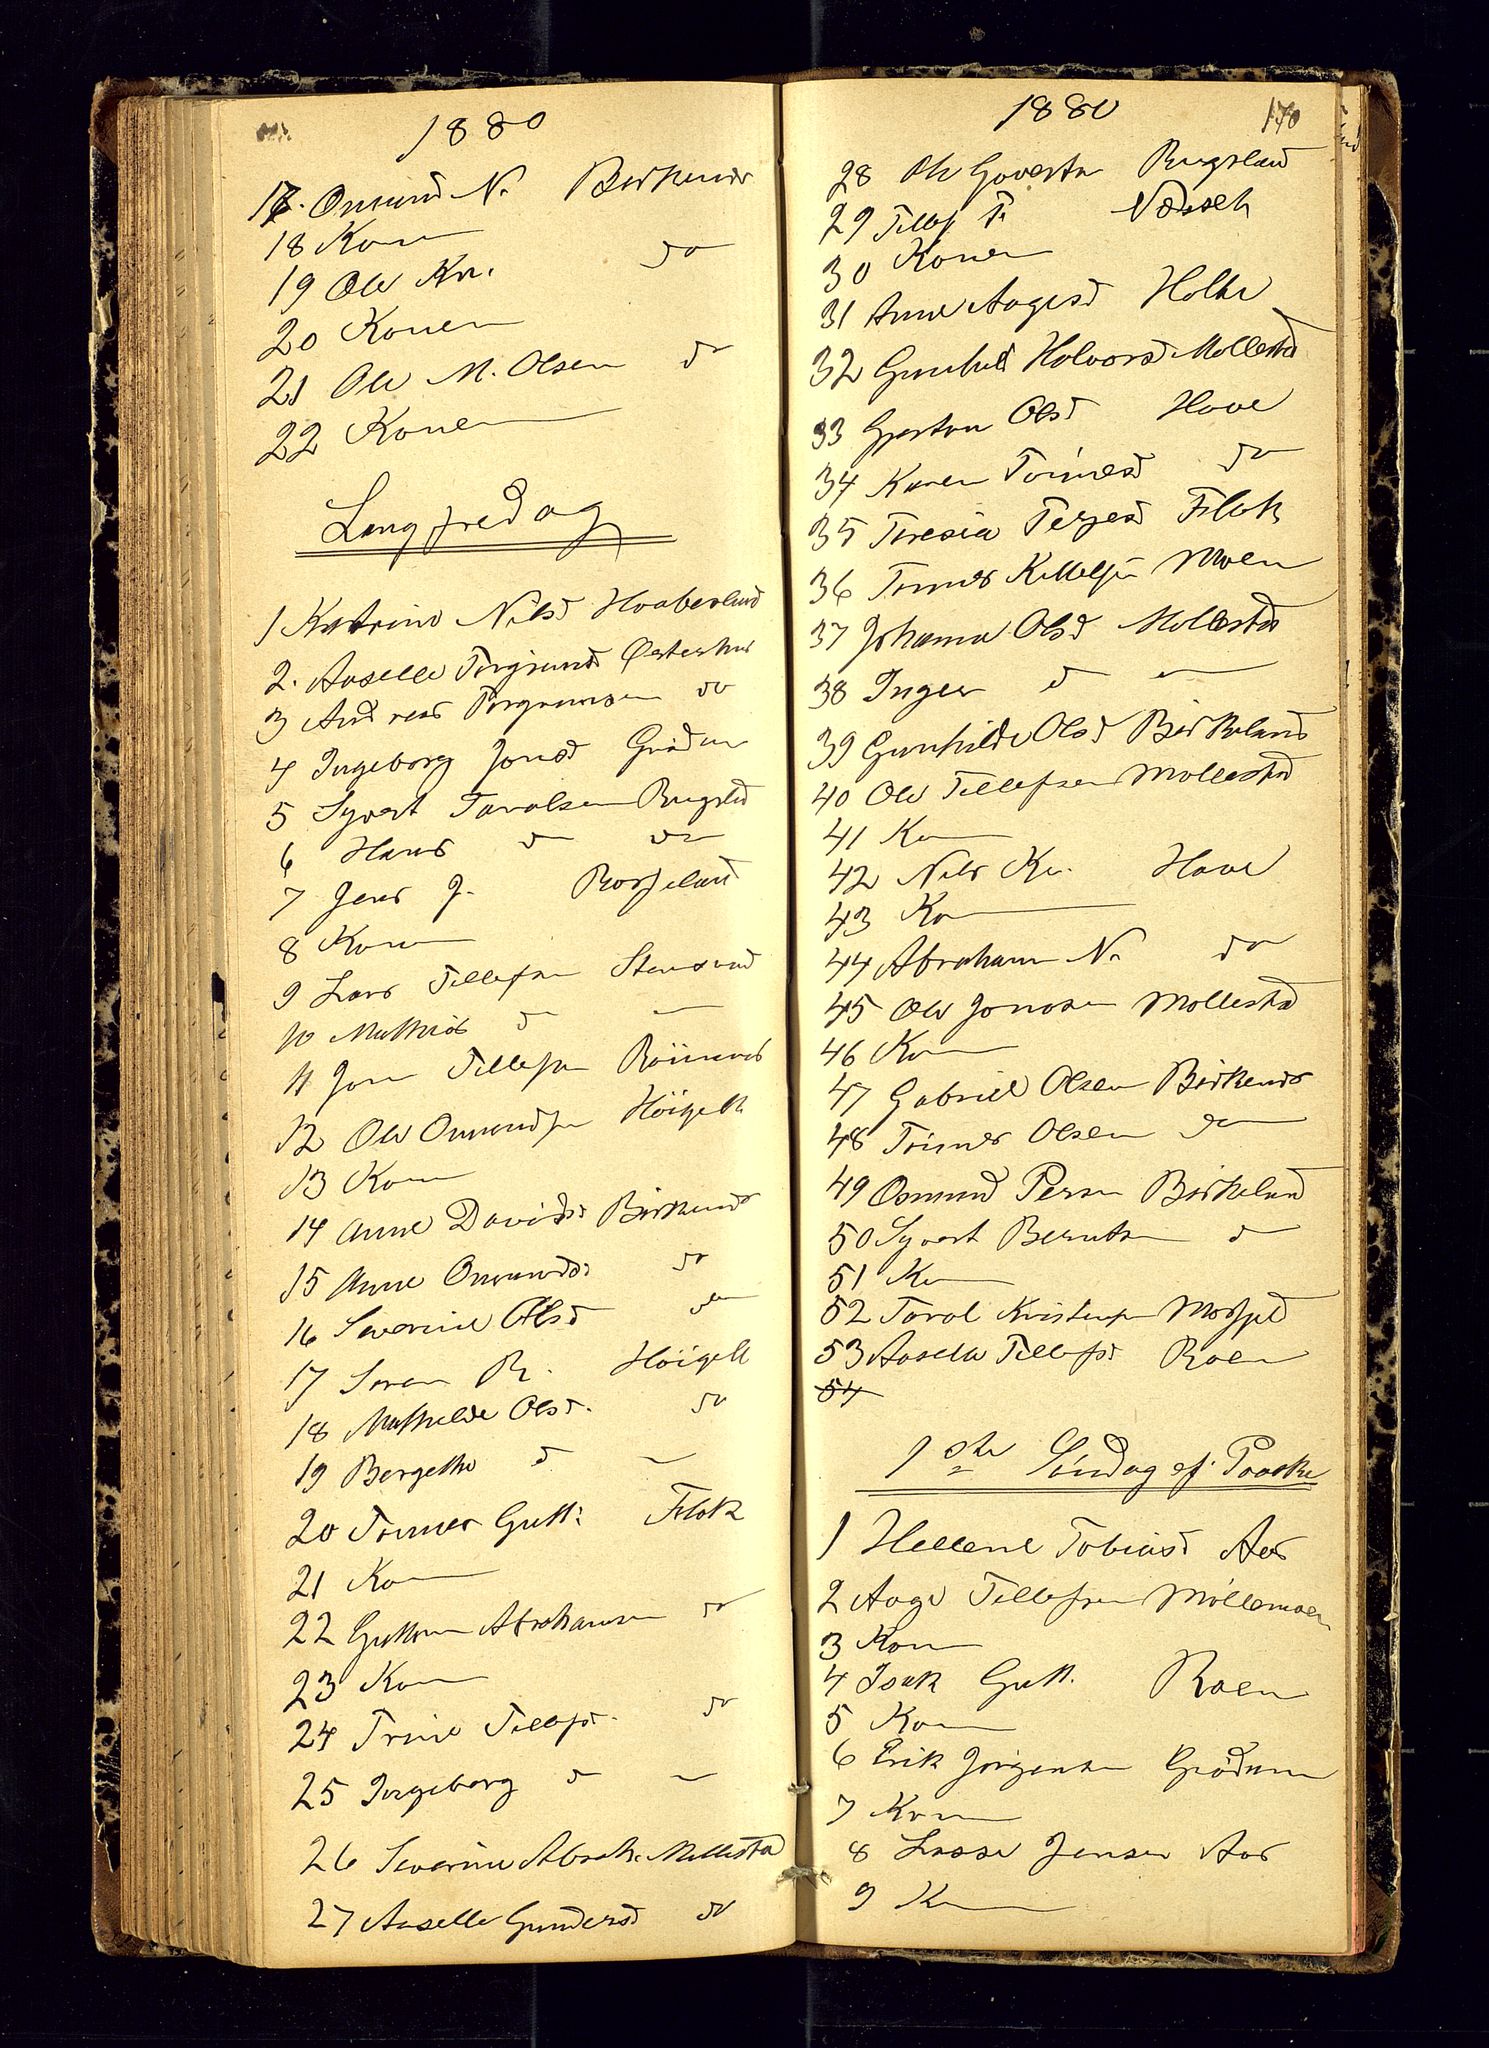 1880
17. Omund N. Birkenes
18 Konen
19 Ole Kn. do
20 Konen
21 Ole M. Olsen do
22 Konen
Langfredag
1 Katrine Nilsd Haaberland
2. Aaselle Torgrimsd Østerhus
3 Andreas Torgrimsen do
4 Ingeborg Jonsd Grødum
5 Syvert Tarolsen Rugsld
6 Hans d do
7 Jens J. Rosseland
8 Konen
9 Lars Tellefsen Stensund
10 Mathias d —
11 Jon Tellefsen
12 Ole Omundsen Höigelt
13 Konen
14 Anne Davidsd Birkenes
15 Anne Omundsd do
16 Severine Olsd do
17 Søren R. Höigelt
18 Mathilde Olsd. do
19 Bergethe d —
20 Tønnes Gutt. Flak
21 Konen
22 Guttorm Abrahamsen do
23 Konen
24 Trine Tellefsd. do
25 Ingeborg d —
26 Severine Abrah. Mollestad
27 Aaselle Gundersd do
1880
170
28 Ole Govertsen Rugsland
29 Tellef T.
30 Konen
31 Anne Aagesd Holte
32 Gunhild Halvorsd Mollestad
33 Gjertru Olsd Hove
34 Karen Tönnesd do
35 Teresia Terjesd Flak
36 Tønnes Kittelsen Moen
37 Johanna Olsd Mollestad
38 Inger d —
39 Gunhilde Olsd Birkeland
40 Ole Tellefsen Mollestad
41 Konen
42 Nils Kn. Hove
43 Konen
44 Abraham N. do
45 Ole Jonasen Mollestad
46 Konen
47 Gabriel Olsen Birkenes
48 Tönnes Olsen do
49 Osmund Persen Birkeland
50 Syvert Berntsen d
51 Konen
52 Tarol Kristensen Mosfjeld
53 Aaselle Tellefsd Roen
54
1ste Söndag ef. Paaske
1 Hellene Tobiasd Aas
2 Aage Tellefsen Möllemoen
3 Konen
4 Isak Gutt. Roen
5 Konen
6 Erik Jörgensen Grödum
7 Konen
8 Lasse Jensen Aas
9 Konen